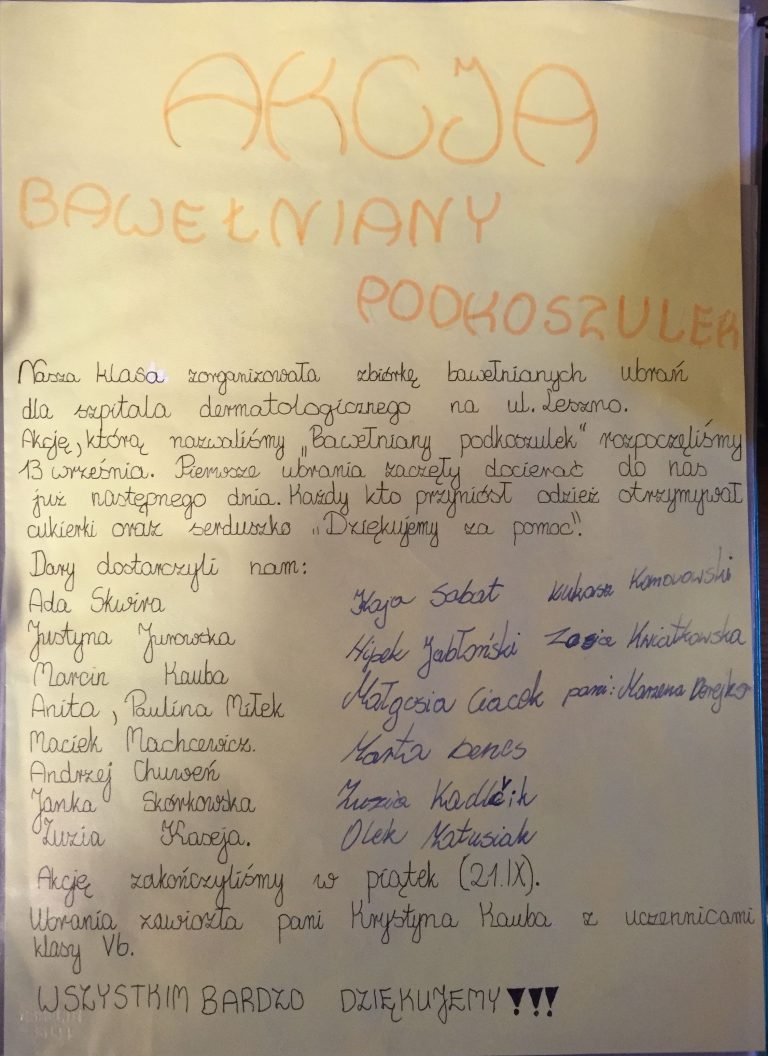 AKCJA
BAWEŁNIANY
PODKOSZULEK
Nasza klasa zorganizowała zbiórkę bawełnianych ubrań
dla szpitala dermatologicznego na ul. Leszno.
Akcję, którą nazwaliśmy „Bawełniany podkoszulek" rozpoczęliśmy
13 września. Pierwsze ubrania zaczęły docierać do nas
już następnego dnia. Każdy kto przyniósł odzież otrzymywał
cukierki oraz serduszko „Dziękujemy za pomoc".
Dary dostarczyli nam:
Ada Skwira
Justyna Jurowska
Marcin Kauba
Anita, Paulina Miłek
Maciek Machcewicz.
Andrzej Chuweń
Janka Skórkowska
Zuzia Kaseja.
Kaja Sabat Łukasz
Hipek Jabłoński Zosia Kwiatkowska
Małgosia Ciacek pani: Marzena
Marta Denes
Zuzia Kadlčik
Olek Matusiak
Akcję zakończyliśmy w piątek (21.IX).
Ubrania zawiozła pani Krystyna Kauba z uczennicami
klasy Vb.
WSZYSTKIM BARDZO DZIĘKUJEMY!!!